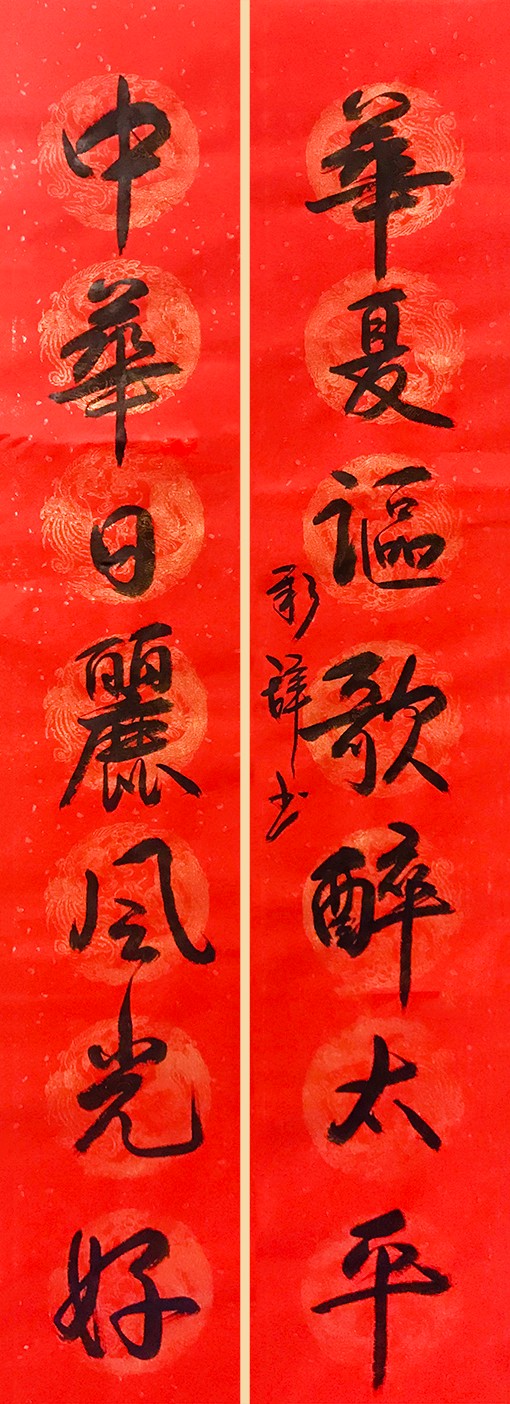 中華日麗風光好
華夏謳歌醉太平
彩書